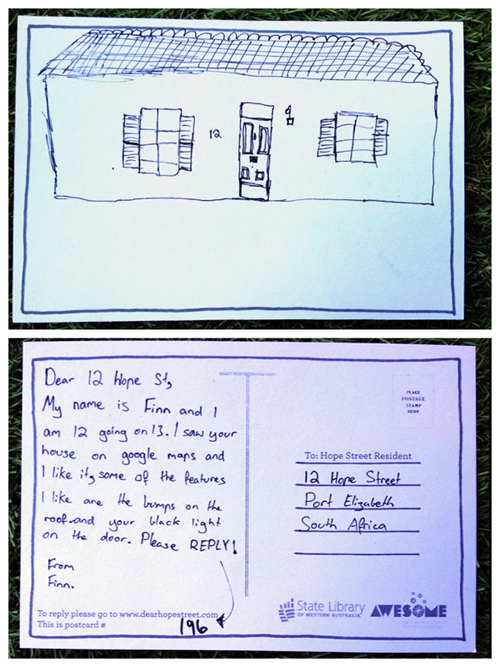 12
Dear 12 Hope St,
My name is Finn and I
am 12 going on 13. I saw your
house on google maps and
I like it, some of the features
I like are the bumps on the
roof. and your black light
on the door. Please REPLY!
From
Finn.
To reply please go to www.dearhopestreet.com
This is postcard # 196
PLACE
POSTAGE
STAMP
HERE
To: Hope Street Resident
12 Hope Street
Port Elizabeth
South Africa
State Library
OF WESTERN AUSTRALIA
AWESOME